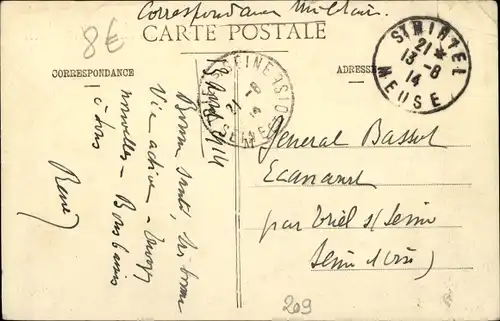 Correspondance Militaire.
8€
CARTE POSTALE
CORRESPONDANCE
ADRESSE
ST MIHIEL
21 *
13 - 8
14
MEUSE
13 août 1914
Bonne santé, très bonne
Vie active - Envoyez
nouvelles - Bons baisers
à tous
René
SEINE
OISE
8
14
Général Bassot
Ecancourt
par Triel s/ Seine
Seine et Oise)
209